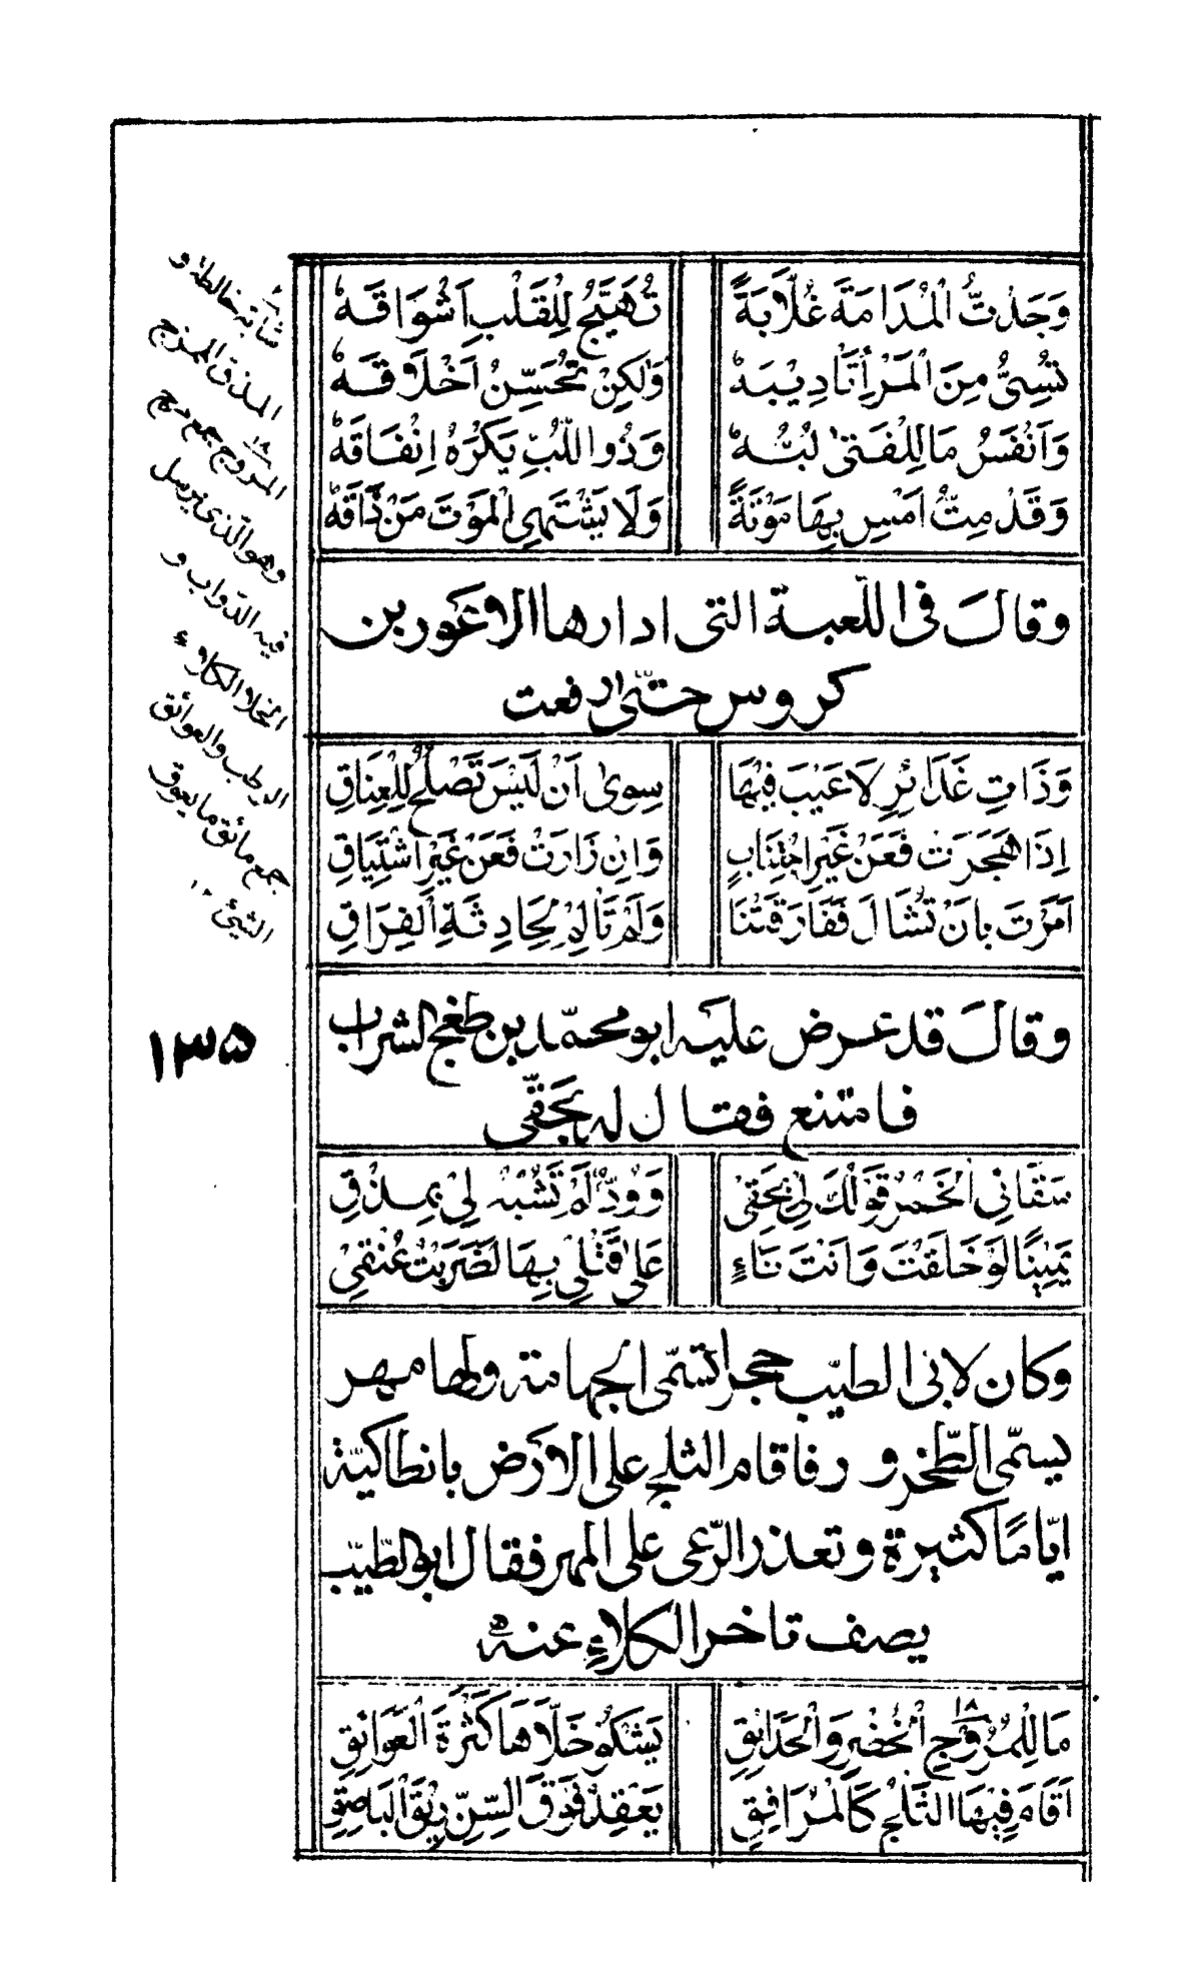 وَجَدْتُّ الْمُدَامَةَ غَلَّابَةً تُهَيِّجُ لِلْقَلْبِ اَشْوَاقَهْ
تُسِيُّ مِنَ الْمَرْأِ تَأْدِيْبَهْ وَلٰكِنْ تُحَسِّنُ اَخْلَاقَهْ
وَاَنْفَسُ مَا لِلْفَتٰى لُبُّهْ وَذُو اللُّبِّ يَكْرَهُ اِنْفَاقَهْ
وَقَدْ مِتُّ اَمْسِ بِهَا مَوْتَةً وَلَا يَشْتَهِي الْمَوْتَ مَنْ ذَاقَهْ
وقال فى اللّعبة التى ادارها الاعور بن
كروس حتّى ادفعت
وَذَاتِ غَدَائِرٍ لَا عَيْبَ فِيْهَا سِوٰى اَنْ لَيْسَ تَصْلُحُ لِلْعِنَاقِ
اِذَا هَجَرَتْ فَعَنْ غَيْرِ اجْتِنَابٍ وَاِنْ زَارَتْ فَعَنْ غَيْرِ اشْتِيَاقِ
اَمَرْتَ بِاَنْ تُشَالَ فَفَارَقَتْنَا وَلَمْ تَأْلَمْ لِحَادِثَةِ الْفِرَاقِ
وقال قد عرض عليه ابو محمّد بن طغج الشراب
فامتنع فقال له بحقّى
سَقَانِي الْخَمْرَ قَوْلُكَ لِيْ بِحَقِّيْ وَوُدٌّ لَمْ تَشُبْهُ لِيْ بِمَذْقِ
يَمِيْنًا لَوْ حَلَفْتَ وَاَنْتَ نَاءٍ عَلٰى قَتْلِيْ بِهَا لَضَرَبْتُ عُنْقِيْ
وكان لابى الطيّب حجر تسمّى الجهامة ولها مهر
يسمّى الطّخرور فاقام الثلج على الارض بانطاكيّة
ايّامًا كثيرة وتعذر الرّعى على المهر فقال ابو الطّيّب
يصف تاخر الكلاء عنه
مَا لِلْمُرُوْجِ الْخُضْرِ وَالْحَدَائِقِ يَشْكُوْ خَلَاهَا كَثْرَةَ الْعَوَائِقِ
اَقَامَ فِيْهَا الثَّلْجُ كَالْمُرَافِقِ يَعْقِدُ فَوْقَ السِّنِّ رِيْقَ الْبَاصِقِ
شابه خالطه و
المذق المزج
المروج جمع مرج
وهو الّذى يرسل
فيه الدّواب و
الخلا الكلاء
الرطب والعوائق
جمع عائق ما يعوق
الشئ ١٢
١٣٥